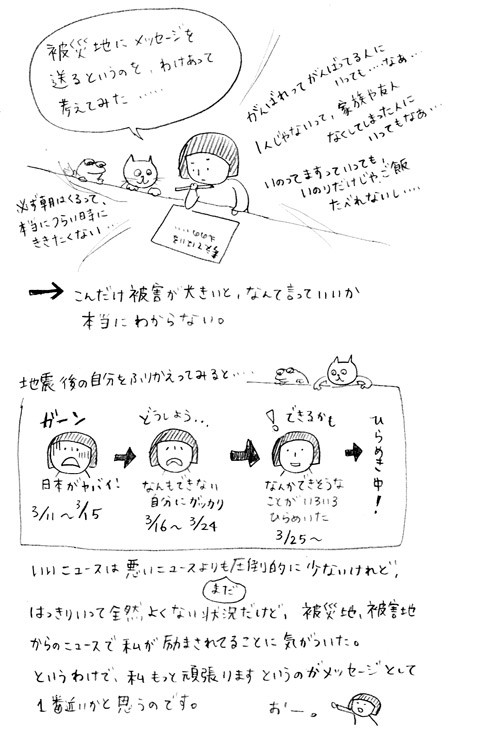 被災地にメッセージを
送るというのを、わけあって
考えてみた……
がんばれってがんばってる人に
いっても‥‥なぁ…
1人じゃないって、家族や友人
なくしてしまった人に
いってもなぁ…
いのってますっていっても!
いのりだけじゃご飯
たべれないし‥‥
必ず朝はくるって、
本当につらい時に
ききたくない…
→ こんだけ被害が大きいと、なんて言っていいか
本当にわからない。
地震後の自分をふりかえってみると‥‥
ガーン
日本がヤバイ!
3/11〜3/15
どうしよう…
なんもできない
自分にガッカリ
3/16〜3/24
! できるかも
なんかできそうな
ことがいろいろ
ひらめいた
3/25〜
ひらめき中!
いいニュースは悪いニュースよりも圧倒的に少ないけれど、
まだ
はっきりいって全然よくない状況だけど、被災地、被害地
からのニュースで私が励まされてることに気がついた。
というわけで、私もっと頑張りますというのがメッセージとして
1番近いかと思うのです。
おー。